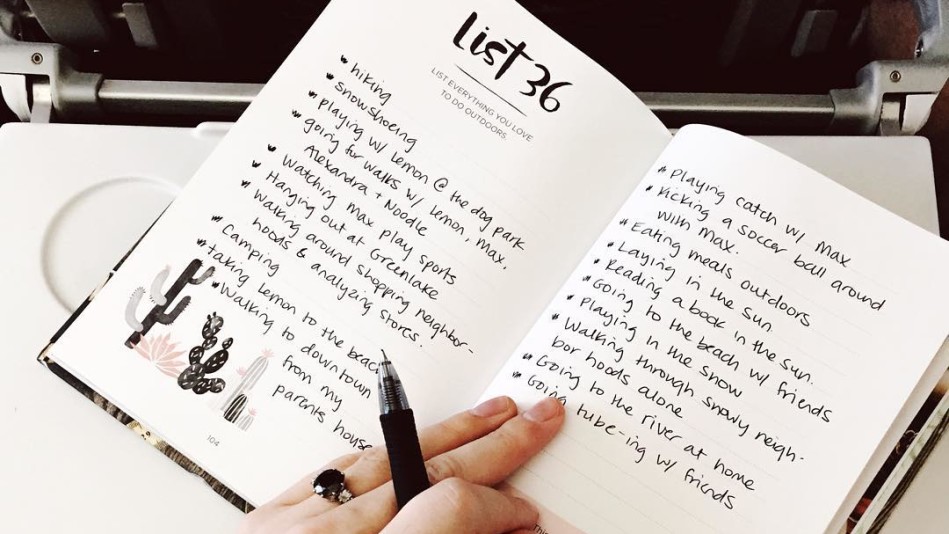 List 36
LIST EVERYTHING YOU LOVE
TO DO OUTDOORS.
hiking
snowshoeing
playing w/ Lemon @ the dog park
going for walks w/ Lemon, Max,
Alexandra + Noodle
Watching Max play sports
Hanging out at Greenlake
Walking around shopping neighbor-
hoods & analyzing stores.
Camping
taking Lemon to the beach
Walking to downtown
from my
parents house
104
Playing catch w/ Max
Kicking a soccer ball around
with Max.
Eating meals outdoors
Laying in the sun.
Reading a book in the sun.
Going to the beach w/ friends
Playing in the snow
Walking through snowy neigh-
bor hoods alone
Going to the river at home
Going tube-ing w/ friends